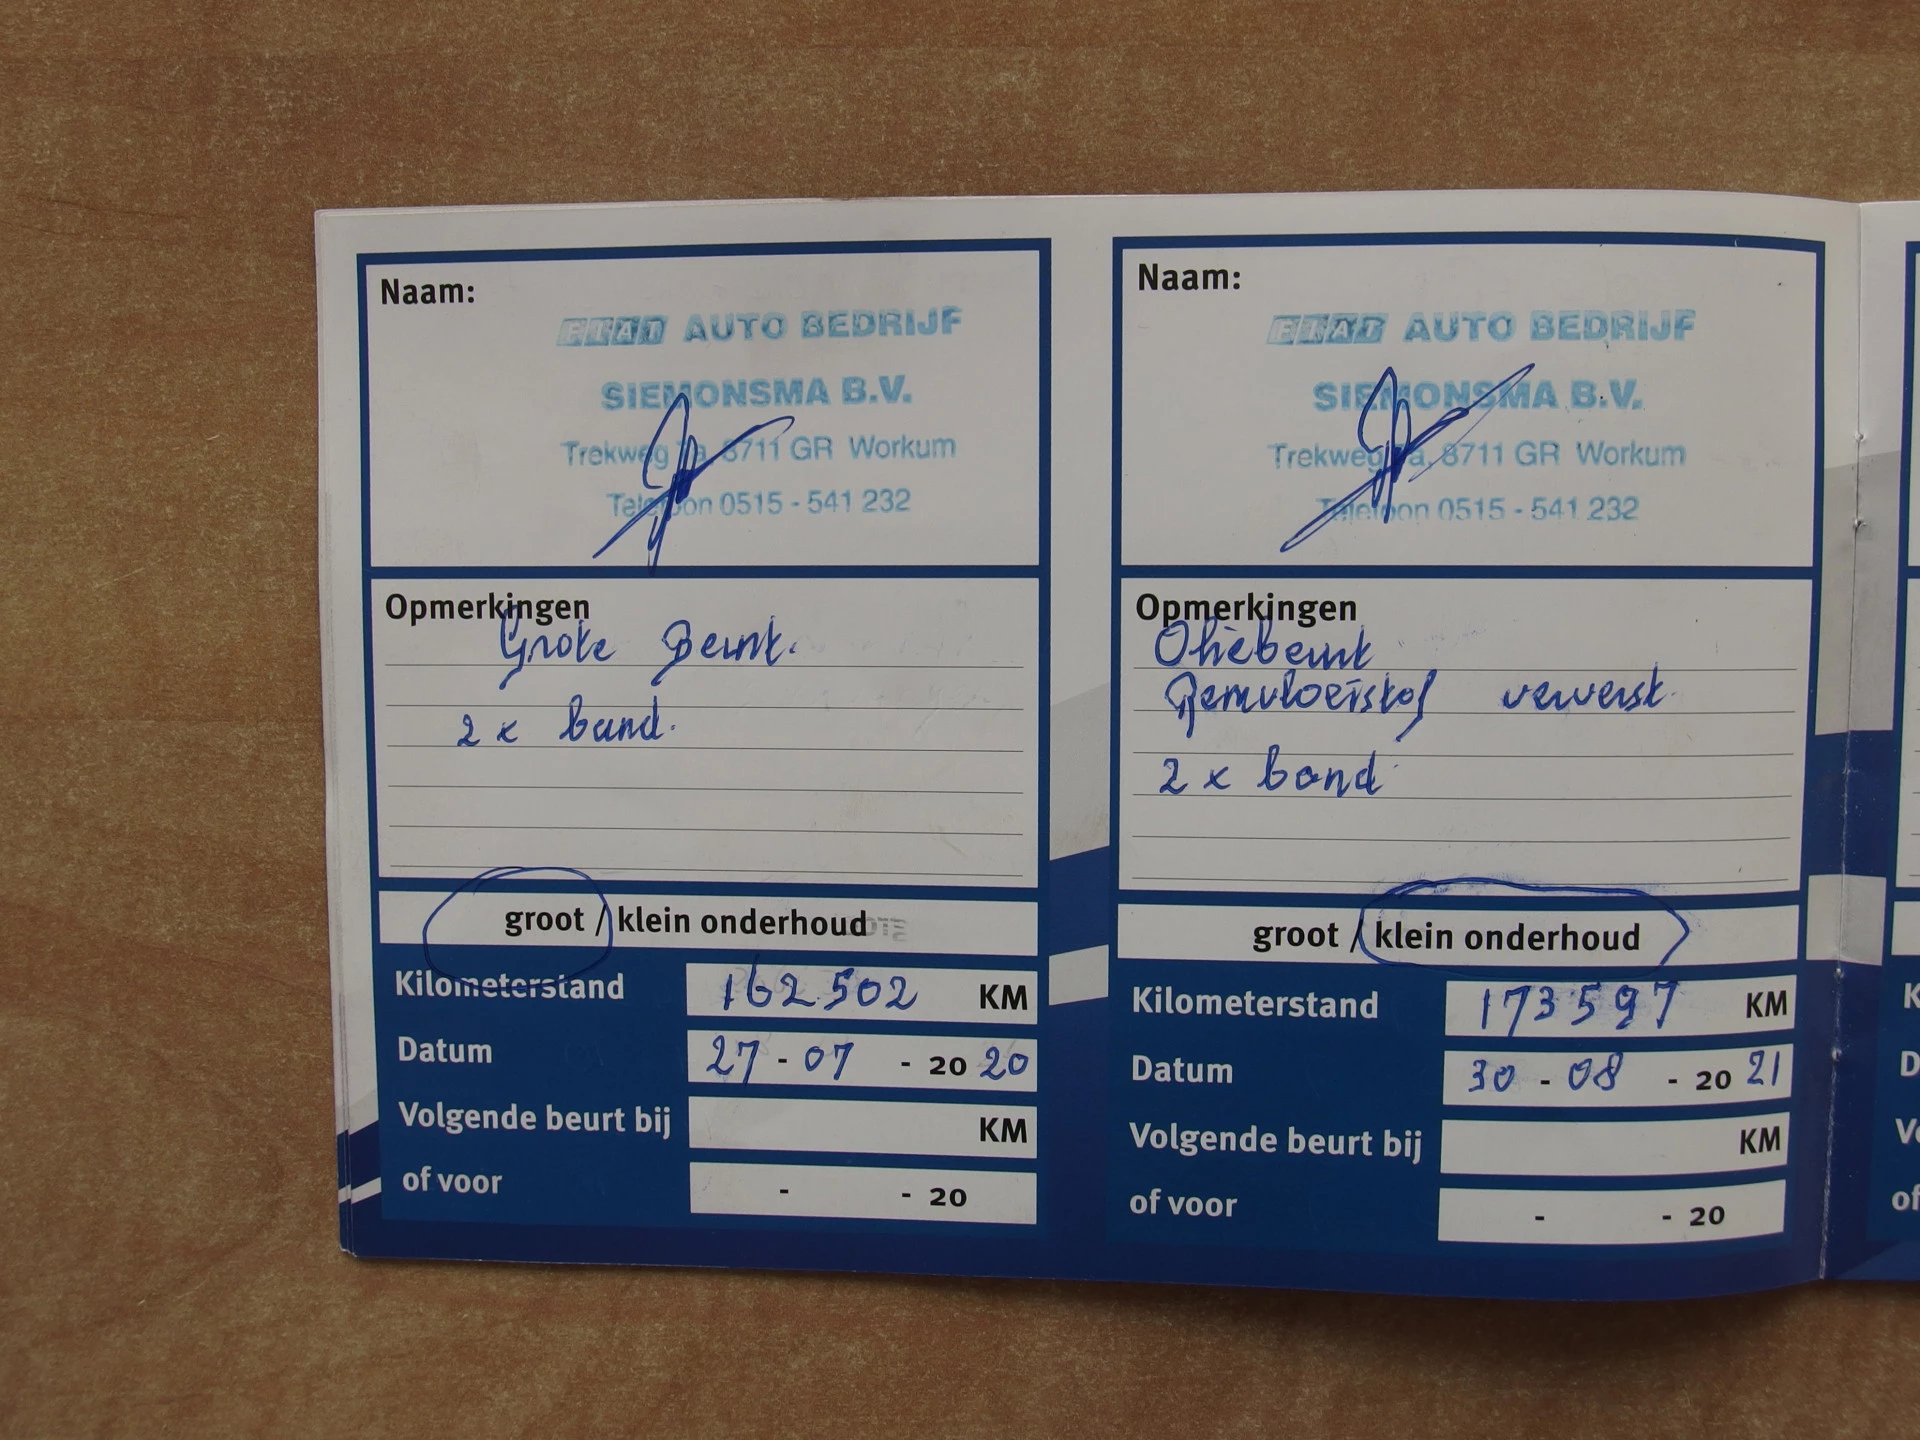 Naam:
FIAT AUTO BEDRIJF
SIEMONSMA B.V.
Trekweg 7a, 8711 GR Workum
Telefoon 0515 - 541 232
Opmerkingen
Grote Beurt.
2 x band.
groot / klein onderhoud
Kilometerstand 162502 KM
Datum 27 - 07 - 20 20
Volgende beurt bij KM
of voor - - 20
Naam:
FIAT AUTO BEDRIJF
SIEMONSMA B.V.
Trekweg 7a, 8711 GR Workum
Telefoon 0515 - 541 232
Opmerkingen
Oliebeurt
Remvloeistof ververst.
2 x band
groot / klein onderhoud
Kilometerstand 173597 KM
Datum 30 - 08 - 20 21
Volgende beurt bij KM
of voor - - 20